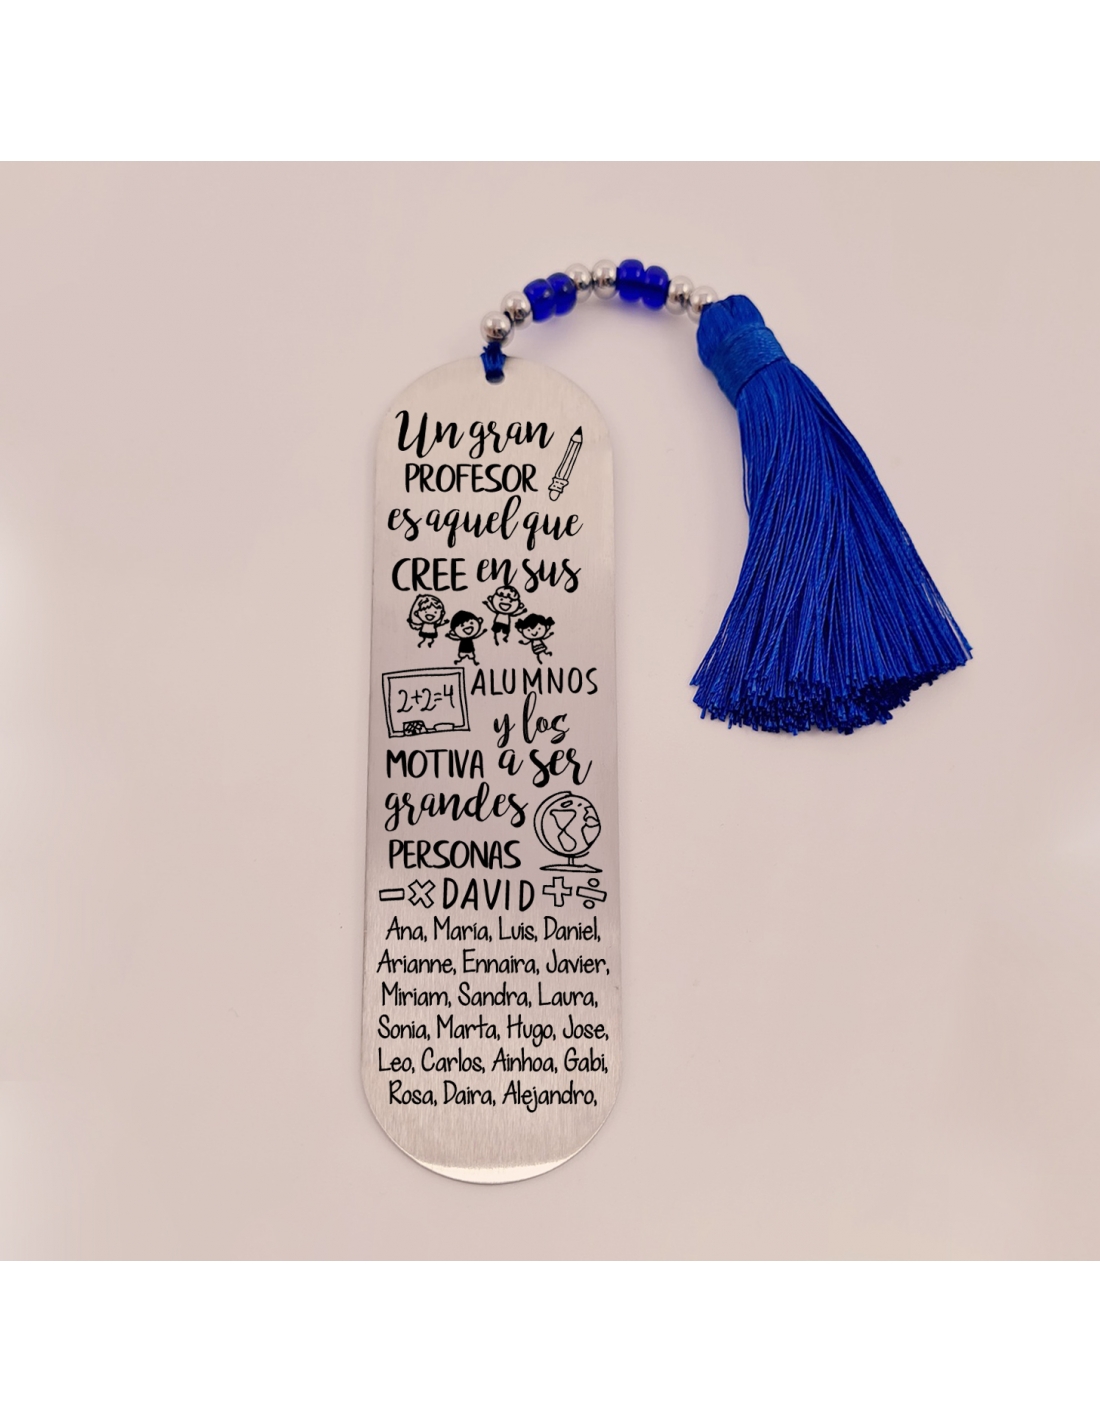 Un gran
PROFESOR
es aquel que
CREE en sus
2+2=4 ALUMNOS
y los
MOTIVA a ser
grandes
PERSONAS
DAVID
Ana, María, Luis, Daniel,
Arianne, Ennaira, Javier,
Miriam, Sandra, Laura,
Sonia, Marta, Hugo, Jose,
Leo, Carlos, Ainhoa, Gabi,
Rosa, Daira, Alejandro,